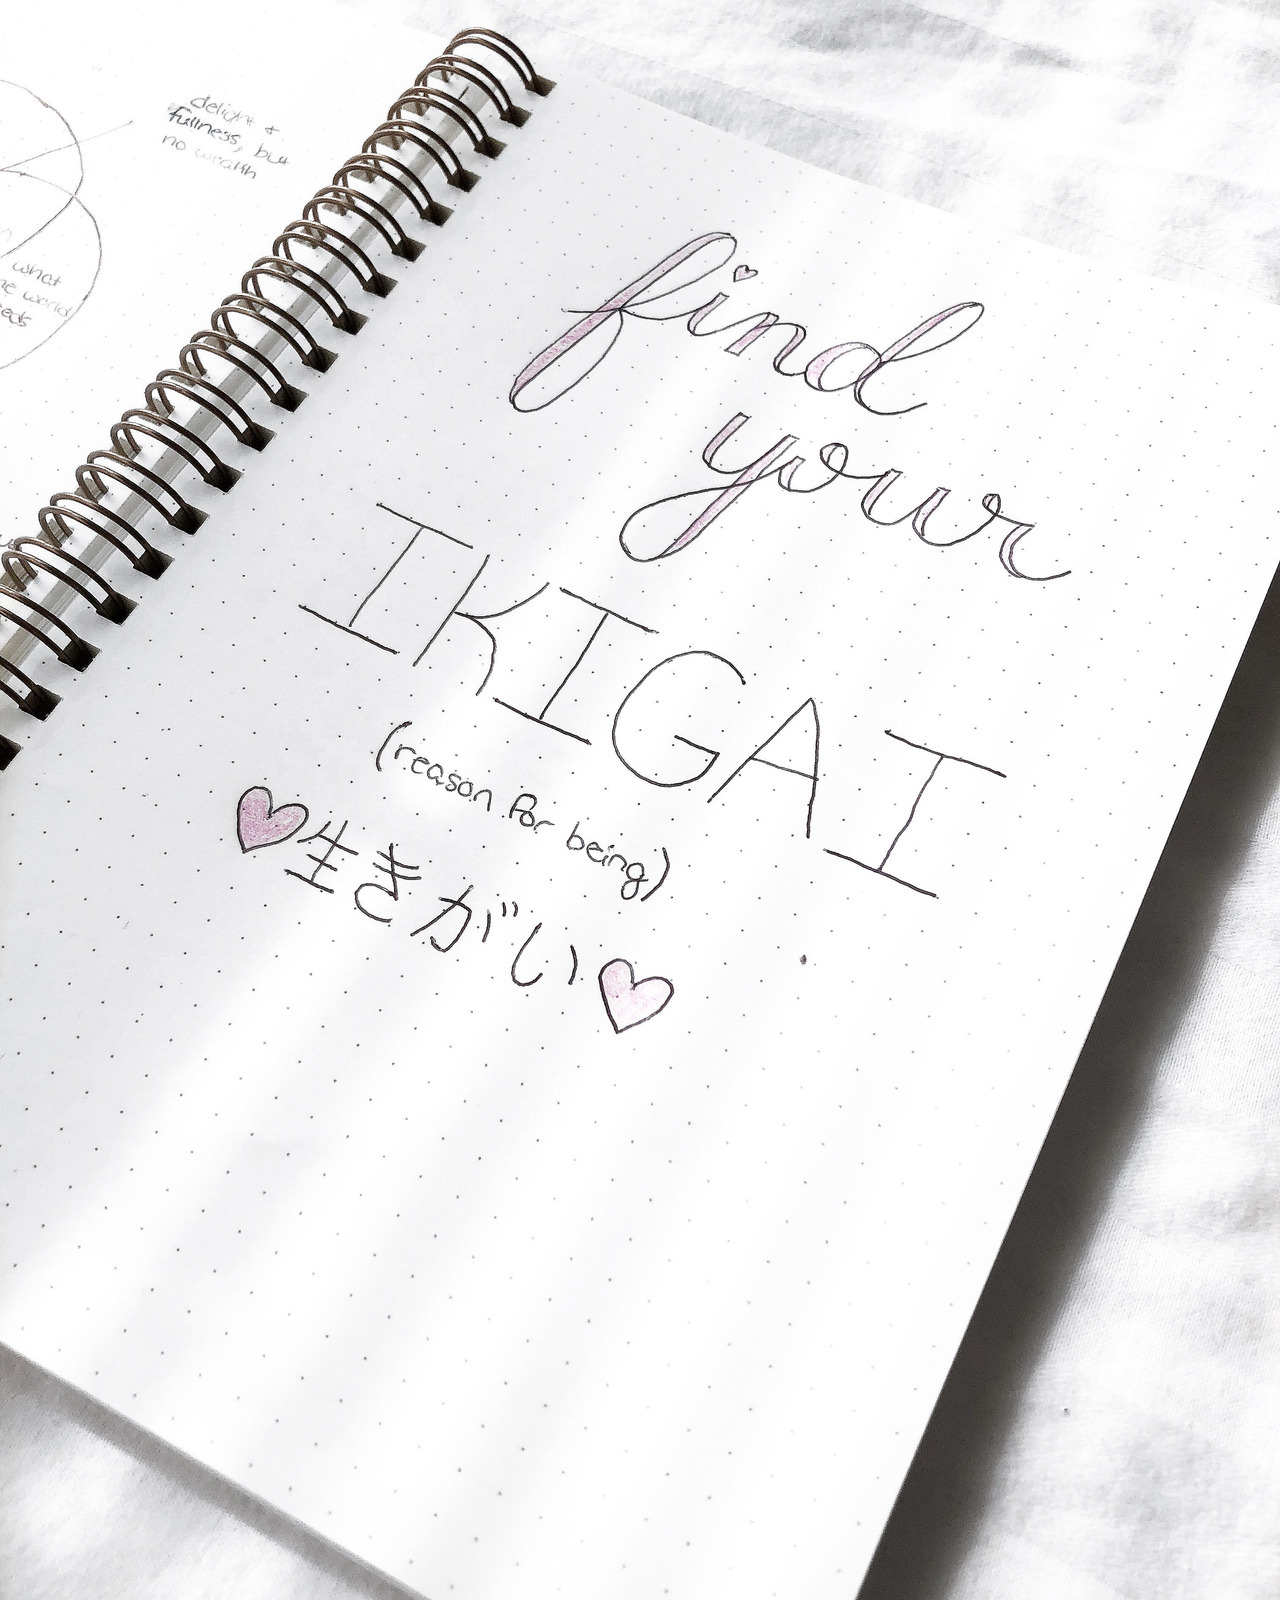 delight &
fullness, but
no wealth
what
needs
find
your
IKIGAI
(reason for being)
生きがい